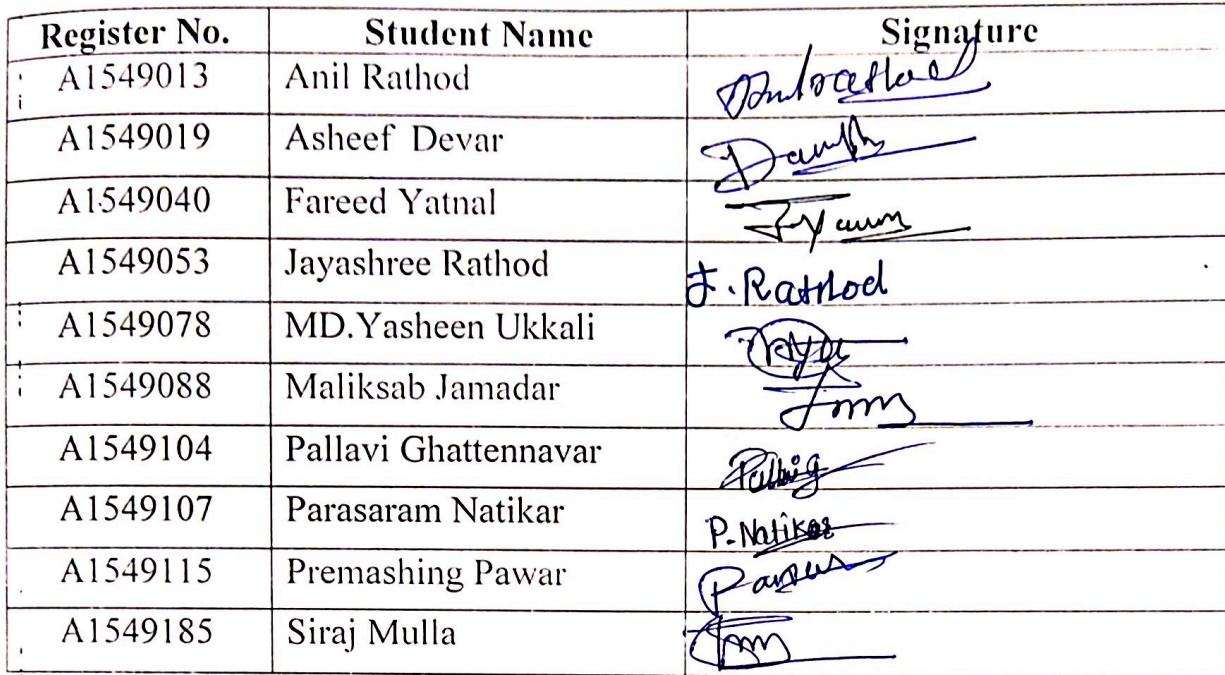 Register No. Student Name Signature
A1549013 Anil Rathod Anilrathod
A1549019 Asheef Devar
A1549040 Fareed Yatnal
A1549053 Jayashree Rathod J. Rathod
A1549078 MD.Yasheen Ukkali
A1549088 Maliksab Jamadar
A1549104 Pallavi Ghattennavar Pallavig
A1549107 Parasaram Natikar P. Natikar
A1549115 Premashing Pawar
A1549185 Siraj Mulla